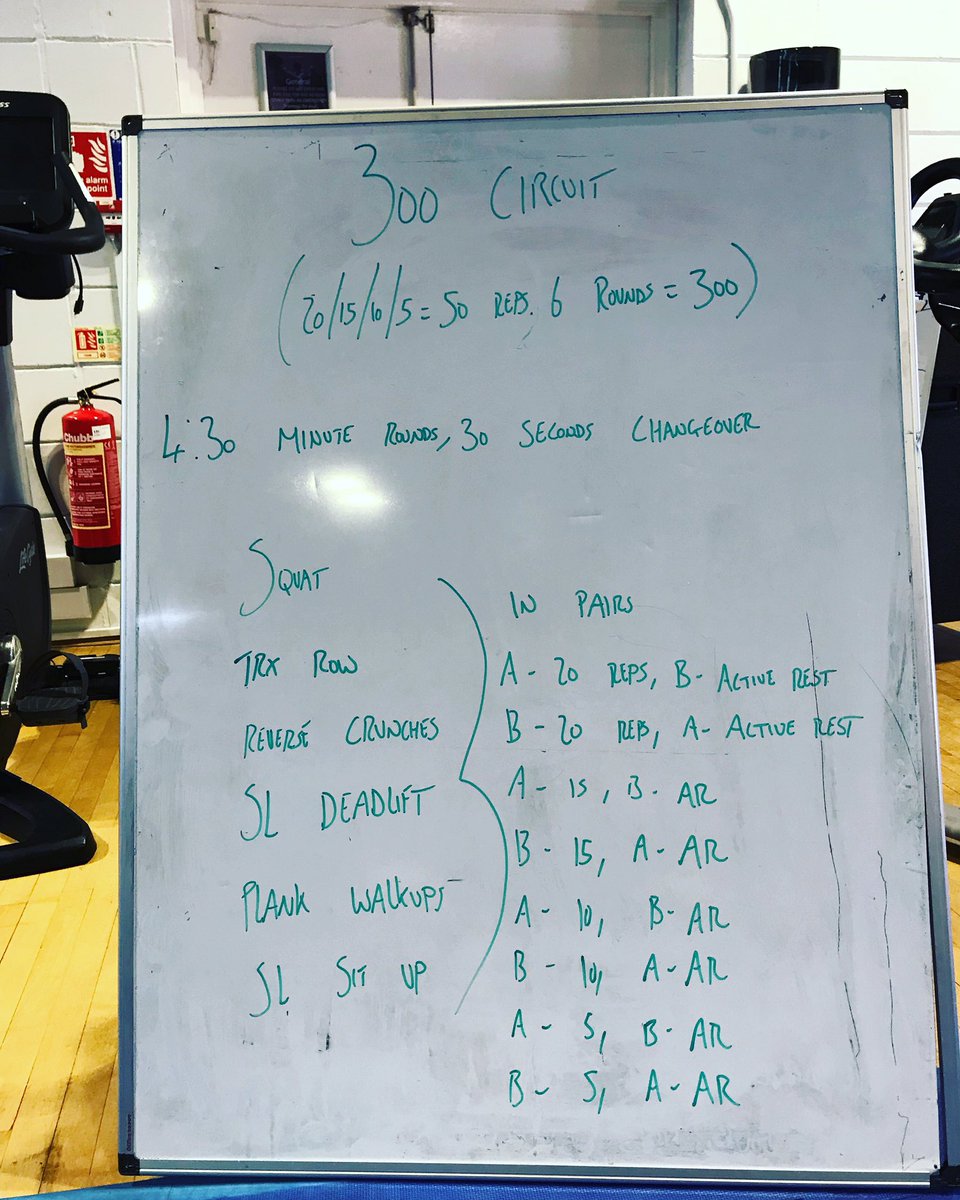 General
ss
alarm
point
Chubb
Life Fitness
300 CIRCUIT
(20/15/10/5 = 50 REPS. 6 ROUNDS = 300)
4:30 MINUTE ROUNDS, 30 SECONDS CHANGEOVER
SQUAT
TRX ROW
REVERSE CRUNCHES
SL DEADLIFT
PLANK WALKUPS
SL SIT UP
IN PAIRS
A - 20 REPS, B - ACTIVE REST
B - 20 REPS, A - ACTIVE REST
A - 15, B - AR
B - 15, A - AR
A - 10, B - AR
B - 10, A - AR
A - 5, B - AR
B - 5, A - AR